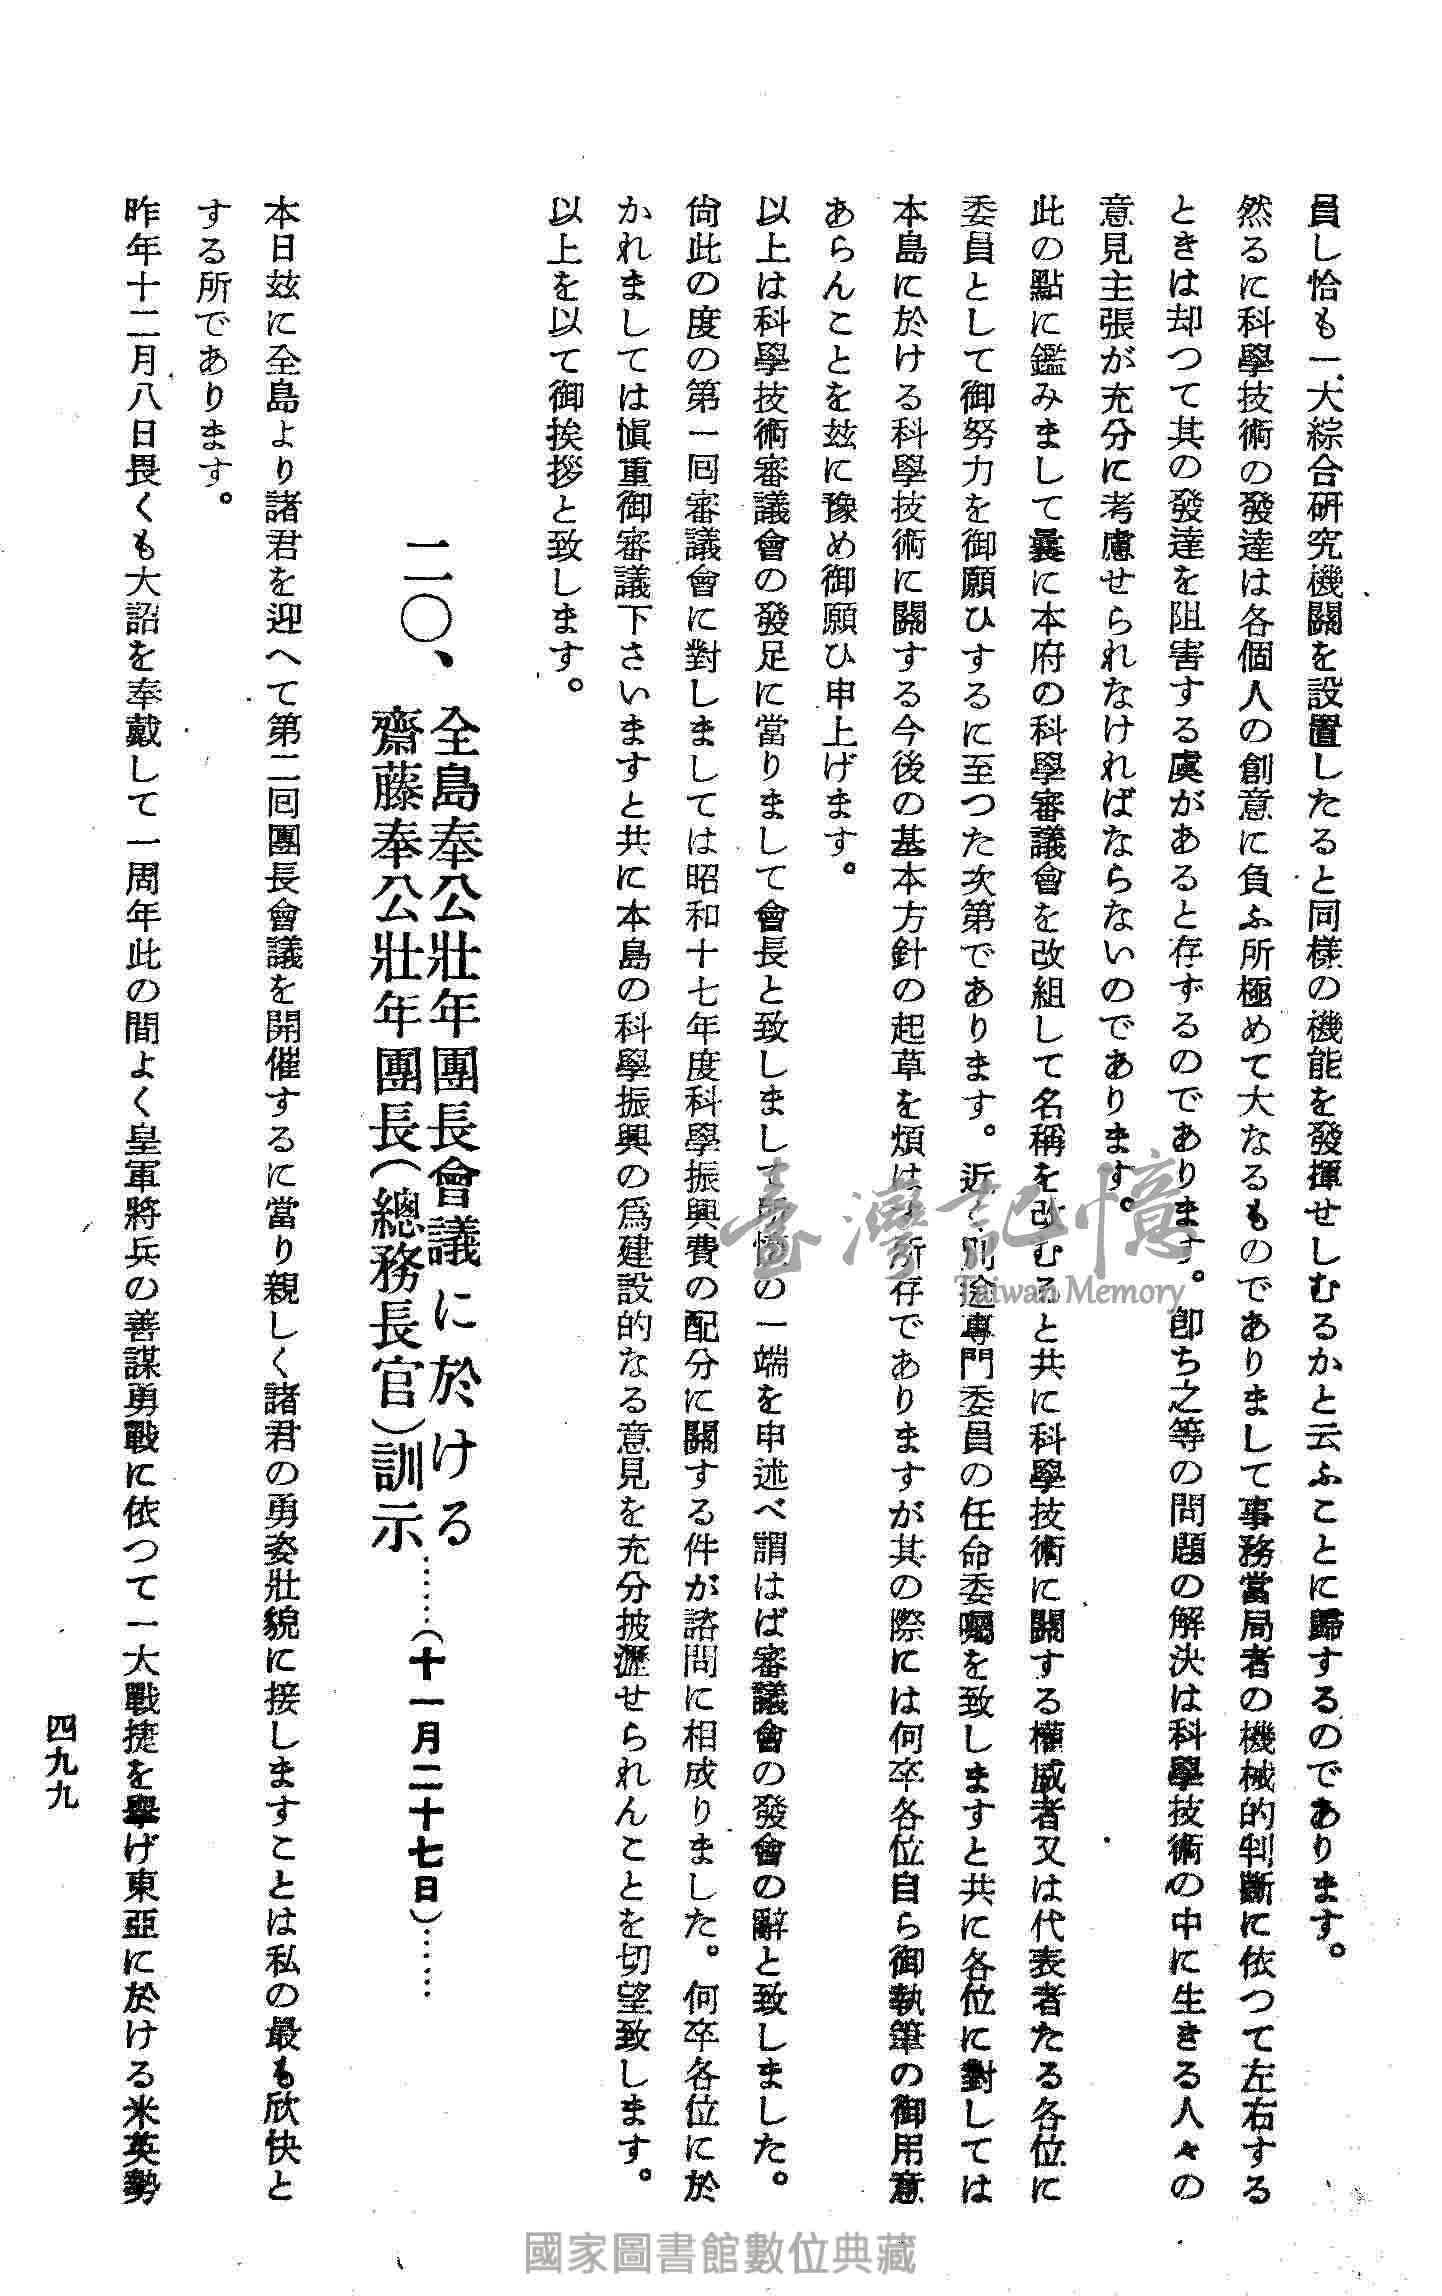 員し恰も一大綜合硏究機關を設置したると同樣の機能を發揮せしむるかと云ふことに歸するのであります。
然るに科學技術の發達は各個人の創意に負ふ所極めて大なるものでありまして事務當局者の機械的判斷に依つて左右する
ときは却つて其の發達を阻害する虞があると存ずるのであります。卽ち之等の問題の解決は科學技術の中に生きる人々の
意見主張が充分に考慮せられなければならないのであります。
此の點に鑑みまして曩に本府の科學審議會を改組して名稱を改むると共に科學技術に關する權威者又は代表者たる各位に
委員として御努力を御願ひするに至つた次第であります。近く別途專門委員の任命委囑を致しますと共に各位に對しては
本島に於ける科學技術に關する今後の基本方針の起草を煩はす所存でありますが其の際には何卒各位自ら御執筆の御用意
あらんことを玆に豫め御願ひ申上げます。
以上は科學技術審議會の發足に當りまして會長と致しまして所懷の一端を申述べ謂はば審議會の發會の辭と致しました。
尙此の度の第一回審議會に對しましては昭和十七年度科學振興費の配分に關する件が諮問に相成りました。何卒各位に於
かれましては愼重御審議下さいますと共に本島の科學振興の爲建設的なる意見を充分披瀝せられんことを切望致します。
以上を以て御挨拶と致します。
二〇、全島奉公壯年團長會議に於ける
齋藤奉公壯年團長(總務長官)訓示……(十一月二十七日)……
本日玆に全島より諸君を迎へて第二回團長會議を開催するに當り親しく諸君の勇姿壯貌に接しますことは私の最も欣快と
する所であります。
昨年十二月八日畏くも大詔を奉戴して一周年此の間よく皇軍將兵の善謀勇戰に依つて一大戰捷を擧げ東亞に於ける米英勢
四九九
臺灣記憶
Taiwan Memory
國家圖書館數位典藏